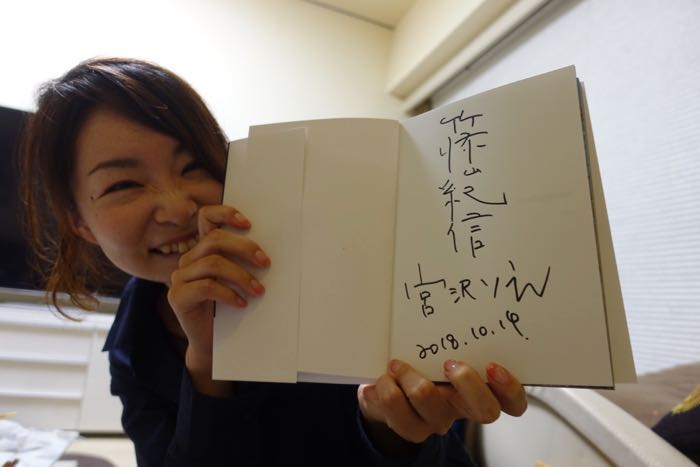 篠山紀信
宮沢りえ
2018.10.14.